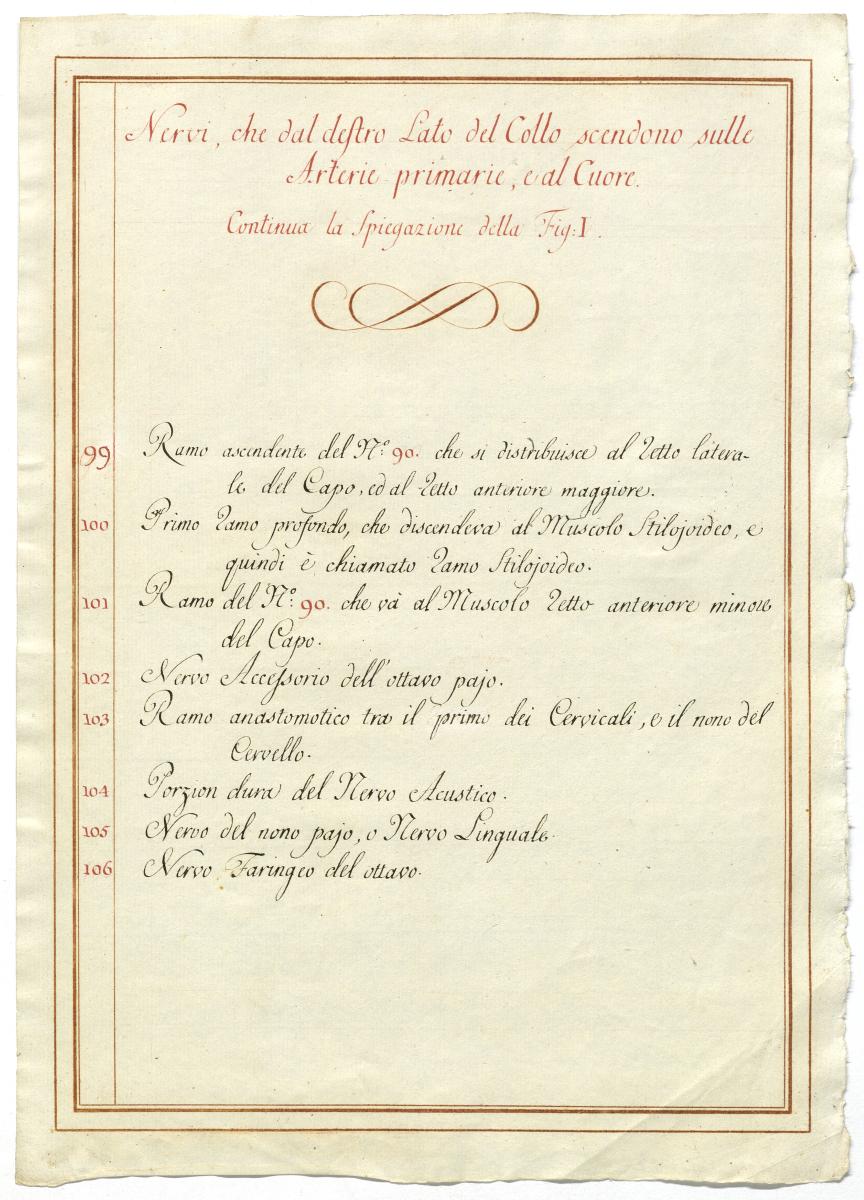 Nervi, che dal destro Lato del Collo scendono sulle
Arterie primarie, e al Cuore.
Continua la Spiegazione della Fig: I.
99 Ramo ascendente del N.° 90. che si distribuisce al Retto latera-
le del Capo, ed al Retto anteriore maggiore.
100 Primo Ramo profondo, che discendeva al Muscolo Stilojoideo, e
quindi è chiamato Ramo Stilojoideo.
101 Ramo del N.° 90. che và al Muscolo Retto anteriore minore
del Capo.
102 Nervo Accessorio dell'ottavo pajo.
103 Ramo anastomotico tra il primo dei Cervicali, e il nono del
Cervello.
104 Porzion dura del Nervo Acustico.
105 Nervo del nono pajo, o Nervo Linguale.
106 Nervo Faringeo del ottavo.